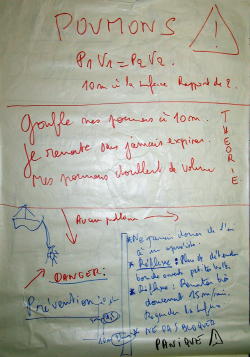 POUMONS
P1 V1 = P2 V2.
10m à la surface Rapport de 2.
Gonfle mes poumons à 10m.
Je remonte sans jamais expirer.
Mes poumons doublent de volume
THEORIE
Avec
DANGER:
Prévention:
* Ne jamais donner de l'air
à un apnéiste.
* Réflexe:
* Réflexe: Remonter
doucement 15m/min.
Regarder la surface
* NE PAS BLOQUER
PANIQUE